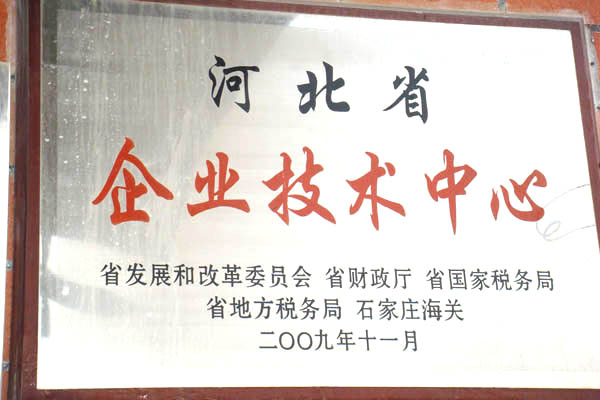 河北省
企业技术中心
省发展和改革委员会 省财政厅 省国家税务局
省地方税务局 石家庄海关
二〇〇九年十一月